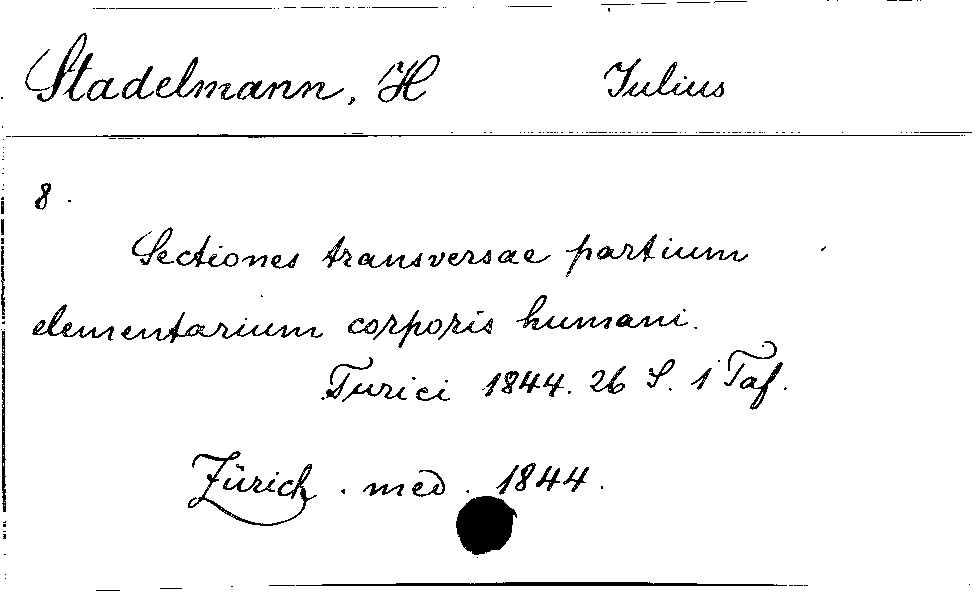 Stadelmann, H Julius
8.
Sectiones transversae partium
elementarium corporis humani.
Turici 1844. 26 S. 1 Taf.
Zürich. med. 1844.